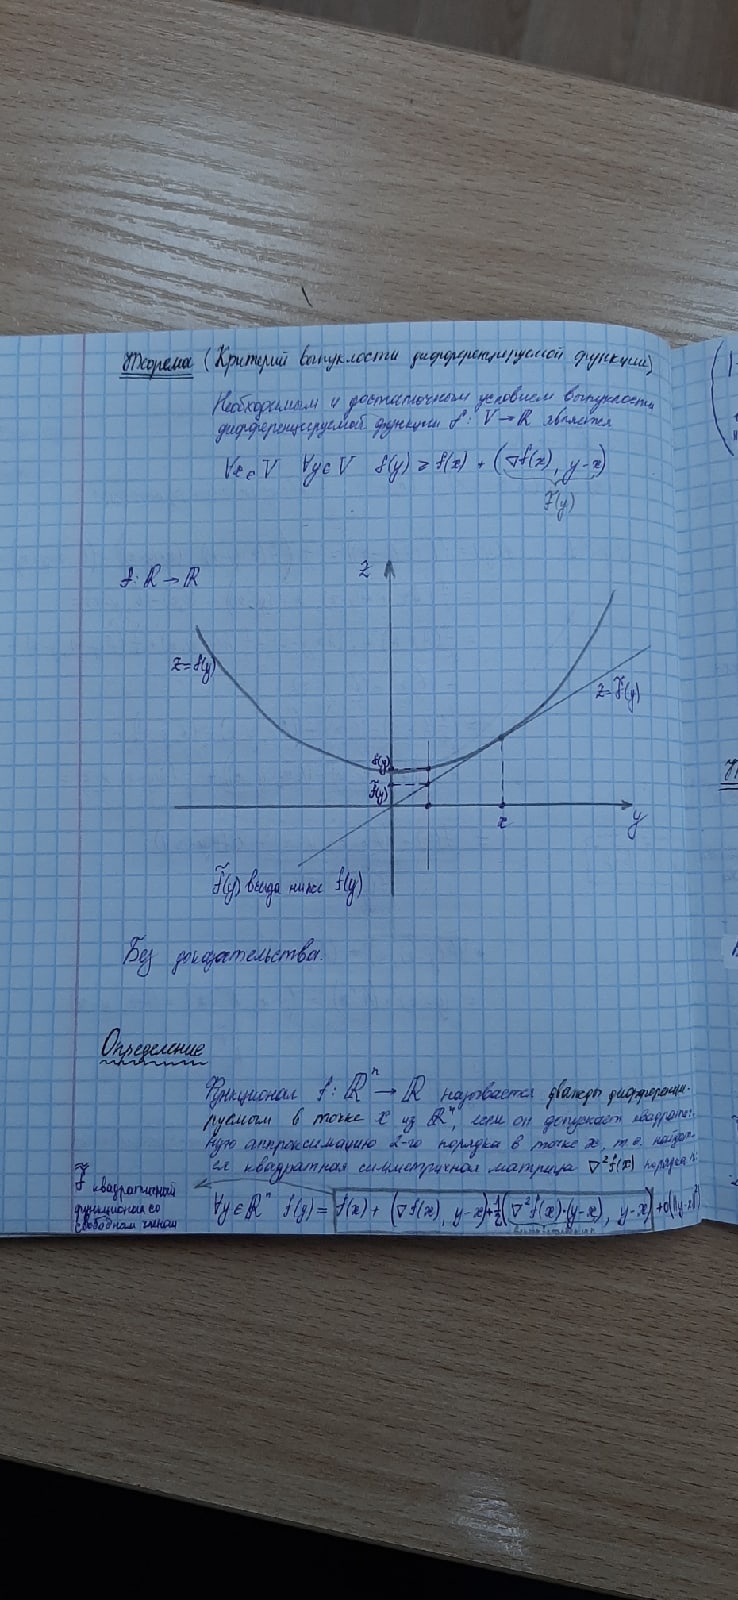 Теорема (Критерий выпуклости дифференцируемой функции)
Необходимым и достаточным условием выпуклости
дифференцируемой функции f: V→R является
∀x∈V ∀y∈V f(y) ≥ f(x) + (∇f(x), y-x)
f̃(y)
f: R→R
z
z=f(y)
z=f̃(y)
f(y)
f̃(y)
x
y
f̃(y) всегда ниже f(y)
Без доказательства.
Определение
Функционал f: Rⁿ→R называется дважды дифференци-
руемым в точке x из Rⁿ, если он допускает квадратич-
ную аппроксимацию 2-го порядка в точке x, т.е. найдёт-
ся квадратная симметричная матрица ∇²f(x) порядка n:
f̃ квадратичный
функционал со
свободным членом
∀y∈Rⁿ f(y) = f(x) + (∇f(x), y-x) + ½(∇²f(x)·(y-x), y-x) + o(‖y-x‖²)